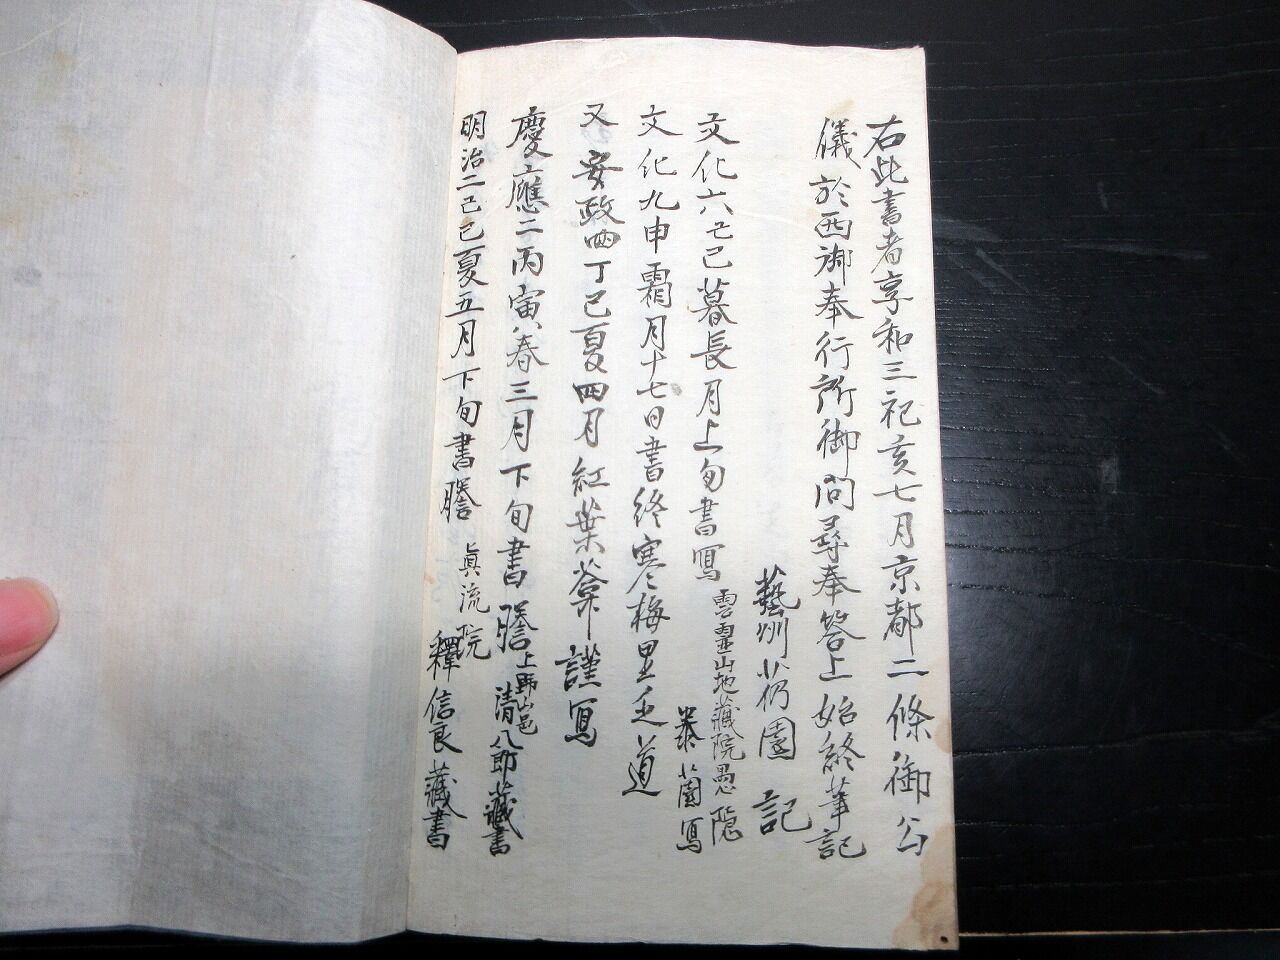 右此書者享和三祀亥七月京都二條御公
儀於西御奉行所御問尋奉答上始終筆記
藝州 園 記
文化六己巳暮長月上旬書寫
雲靈山地藏院愚隠
菌寫
文化九申霜月十七日書終寒梅里乏道
又安政四丁巳夏四月紅葉菴謹寫
慶應二丙寅春三月下旬書謄
上野山邑
清八郎藏書
明治二己巳夏五月下旬書謄
眞流院
釋信良藏書